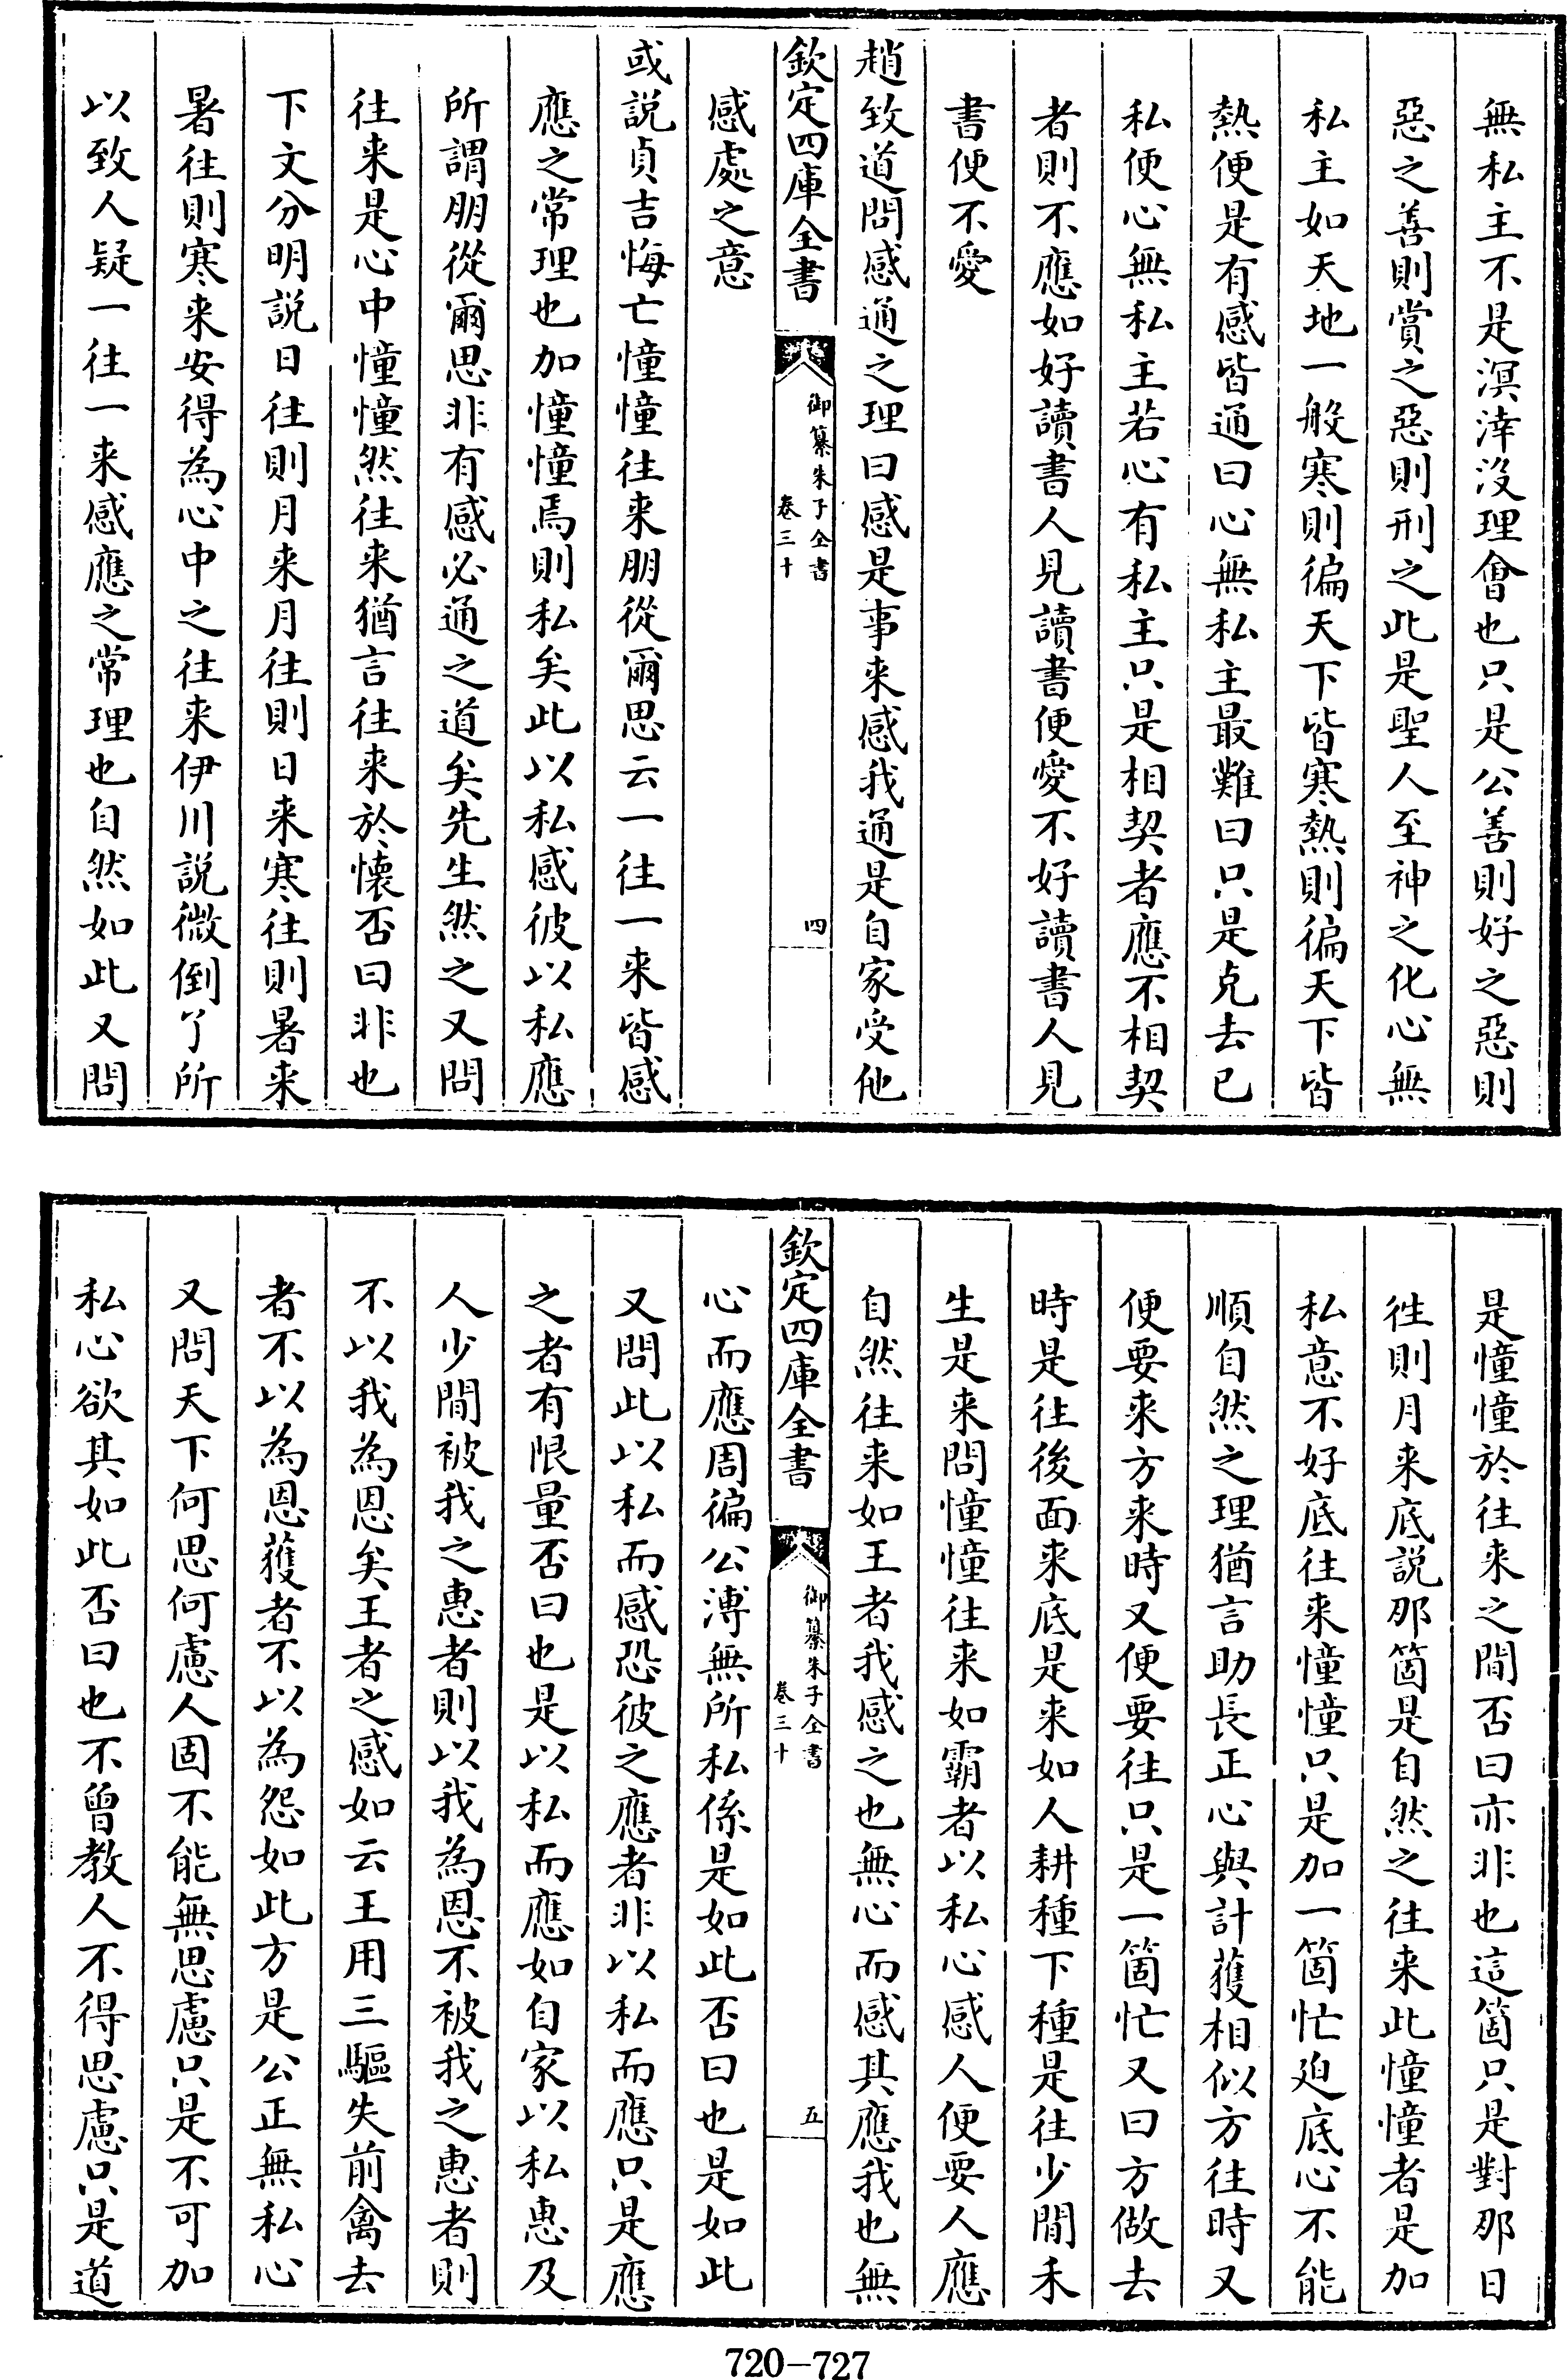 無私主不是溟涬沒理會也只是公善則好之惡則
惡之善則賞之惡則刑之此是聖人至神之化心無
私主如天地一般寒則徧天下皆寒熱則徧天下皆
熱便是有感皆通曰心無私主最難曰只是克去已
私便心無私主若心有私主只是相契者應不相契
者則不應如好讀書人見讀書便愛不好讀書人見
書便不愛
趙致道問感通之理曰感是事来感我通是自家受他
欽定四庫全書
御纂朱子全書
卷三十
四
感處之意
或說貞吉悔亡憧憧往来朋從爾思云一往一来皆感
應之常理也加憧憧焉則私矣此以私感彼以私應
所謂朋從爾思非有感必通之道矣先生然之又問
往来是心中憧憧然往来猶言往来於懐否曰非也
下文分明說日往則月来月往則日来寒往則暑来
暑往則寒来安得為心中之往来伊川說微倒了所
以致人疑一往一来感應之常理也自然如此又問
是憧憧於往来之間否曰亦非也這箇只是對那日
徃則月来底說那箇是自然之往来此憧憧者是加
私意不好底往来憧憧只是加一箇忙廹底心不能
順自然之理猶言助長正心與計獲相似方往時又
便要来方来時又便要往只是一箇忙又曰方做去
時是往後面来底是来如人耕種下種是往少間禾
生是来問憧憧往来如霸者以私心感人便要人應
自然往来如王者我感之也無心而感其應我也無
欽定四庫全書
御纂朱子全書
卷三十
五
心而應周徧公溥無所私係是如此否曰也是如此
又問此以私而感恐彼之應者非以私而應只是應
之者有限量否曰也是以私而應如自家以私惠及
人少間被我之惠者則以我為恩不被我之惠者則
不以我為恩矣王者之感如云王用三驅失前禽去
者不以為恩獲者不以為怨如此方是公正無私心
又問天下何思何慮人固不能無思慮只是不可加
私心欲其如此否曰也不曾教人不得思慮只是道
720-727